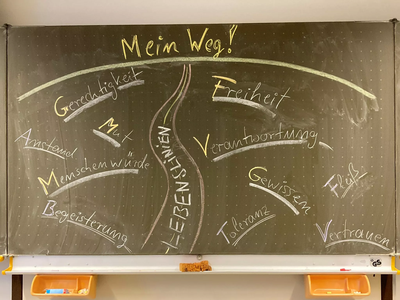 Mein Weg!
Gerechtigkeit
Freiheit
Mut
Anstand
Verantwortung
Menschenwürde
LEBENSLINIEN
Gewissen
Fleiß
Begeisterung
Toleranz
Vertrauen